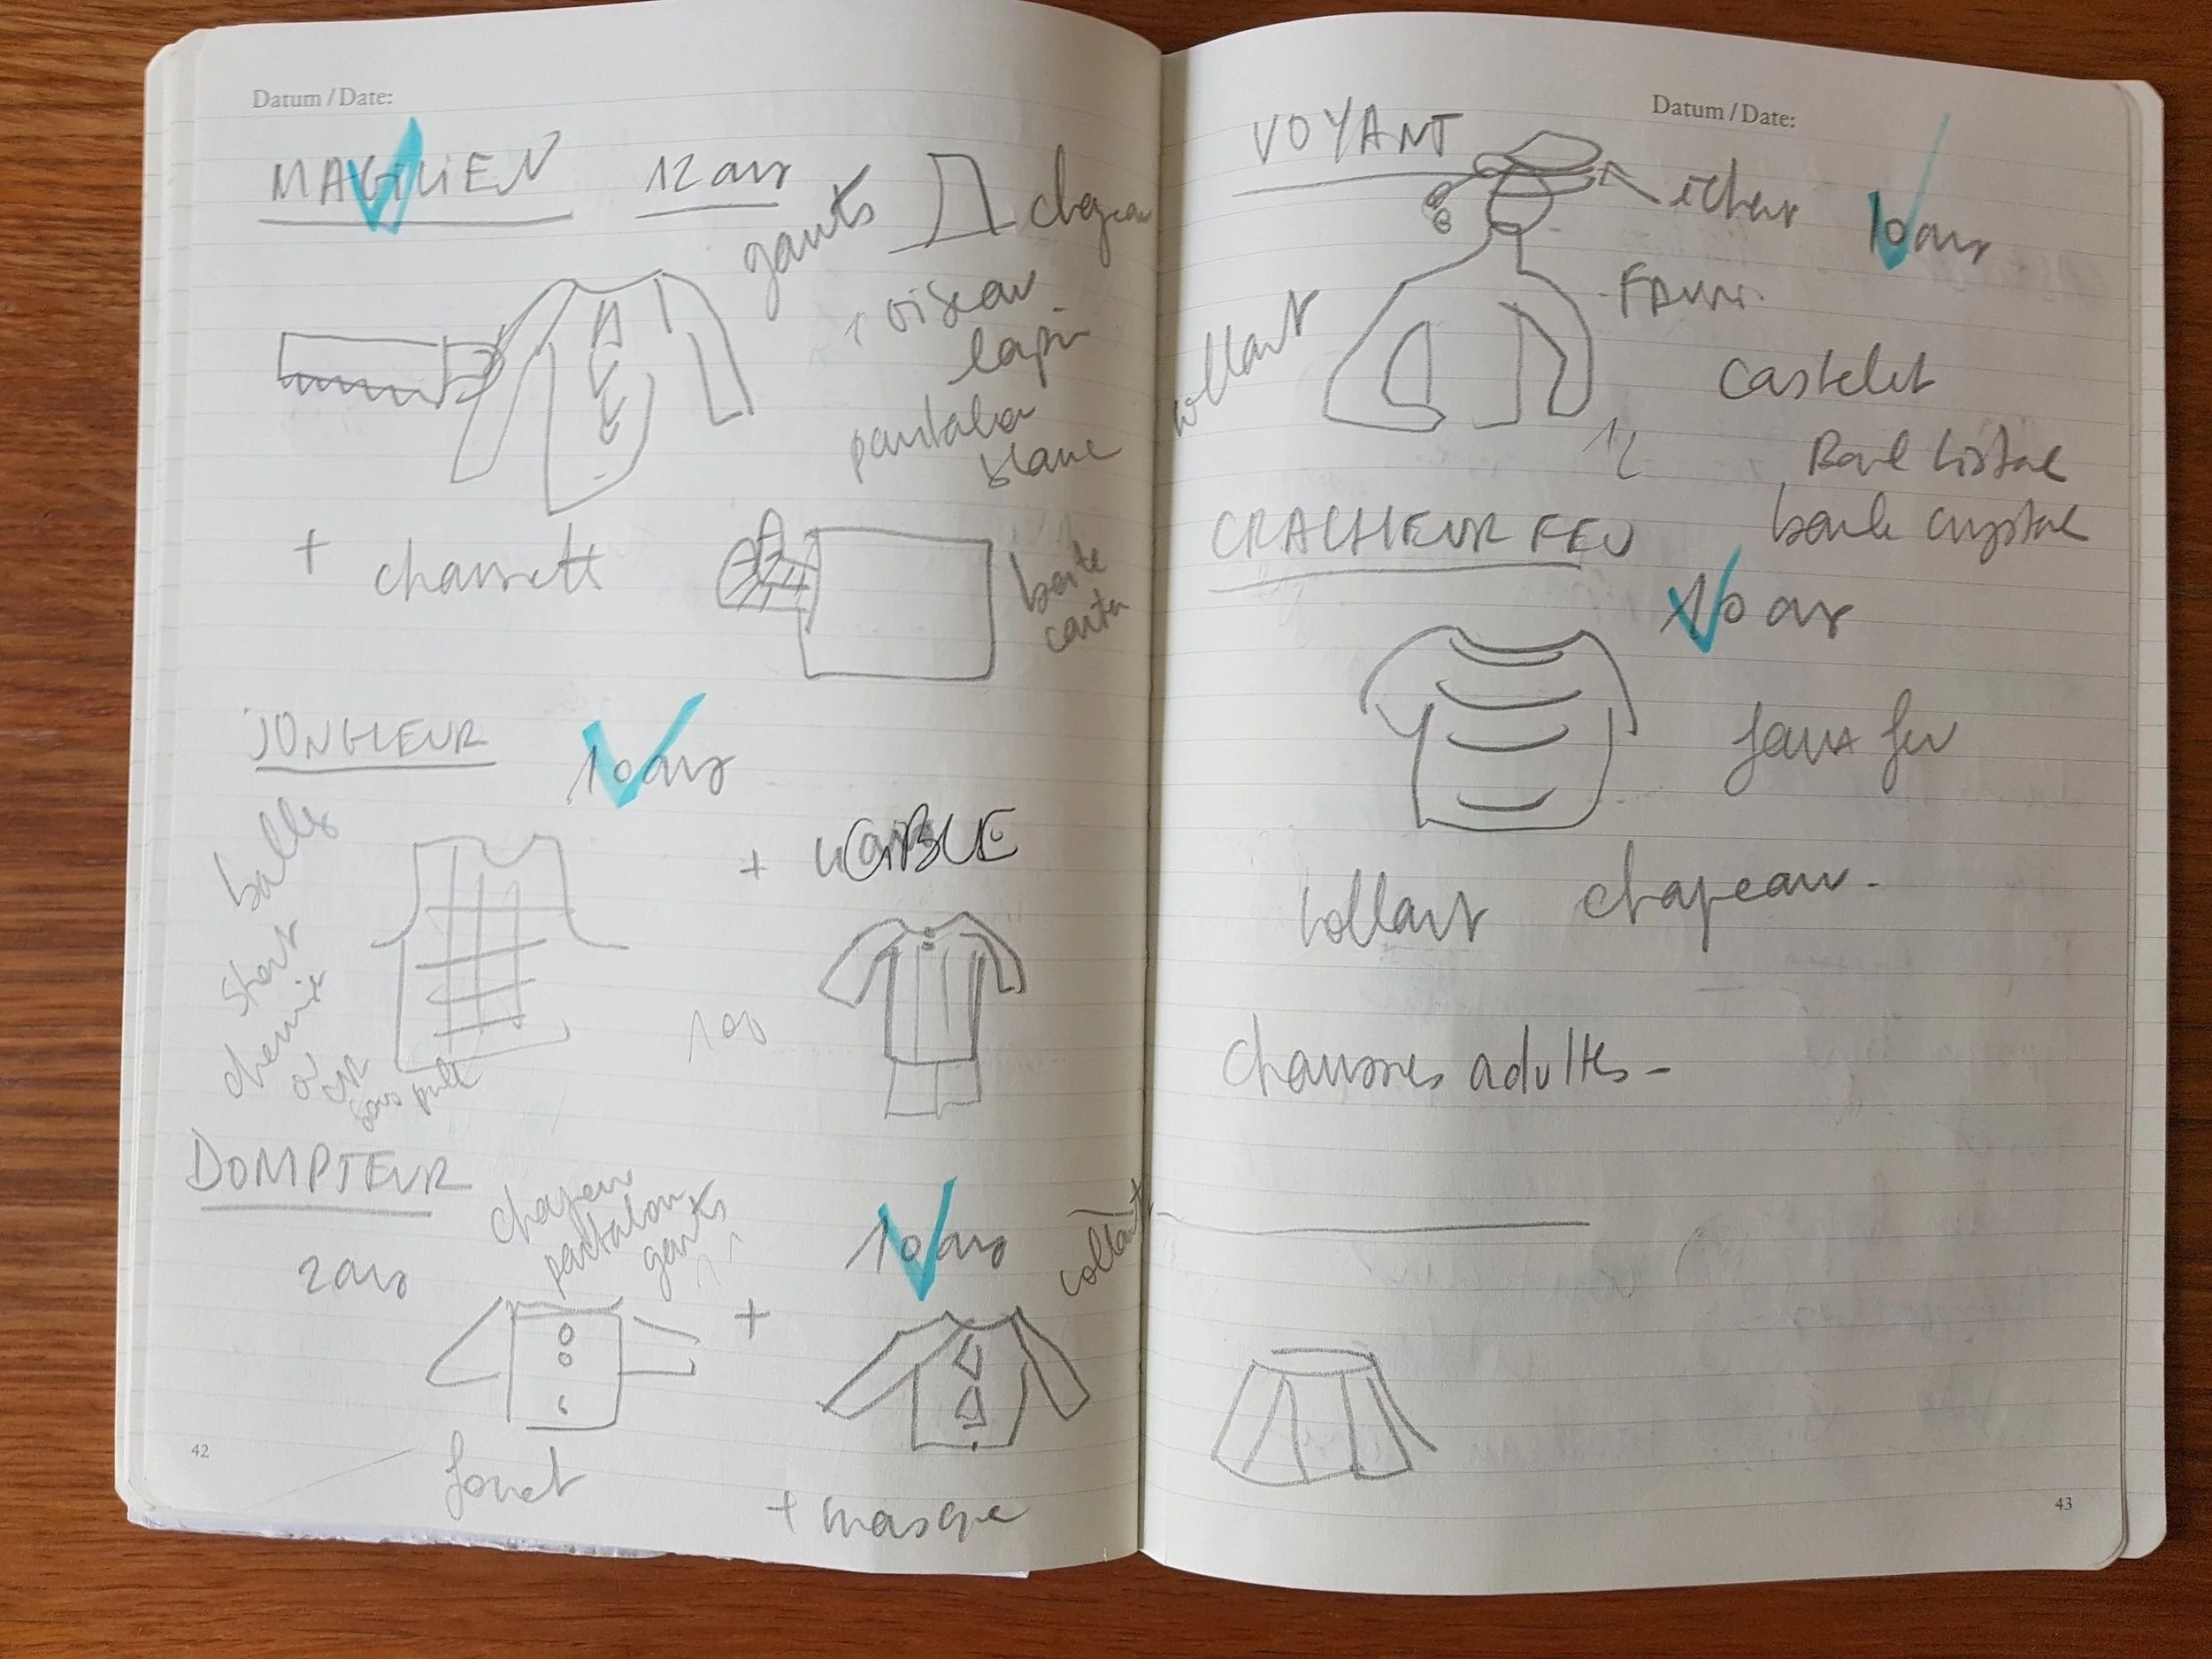 Datum / Date:
MAGICIEN 12 ans
gants chapeau
oiseau
lapin
pantalon
blanc
+ chaussette
boite
carton
JONGLEUR 10 ans
balles
short
chemise
ou
sous pull
+ CIBLE
DOMPTEUR
2 ans
chapeau
pantalon
gants
+
10 ans
collant
fouet
+ masque
42
Datum / Date:
VOYANT
10 ans
collant
castelet
boule cristal
CRACHEUR FEU
10 ans
faux feu
collant chapeau -
chaussures adultes -
43